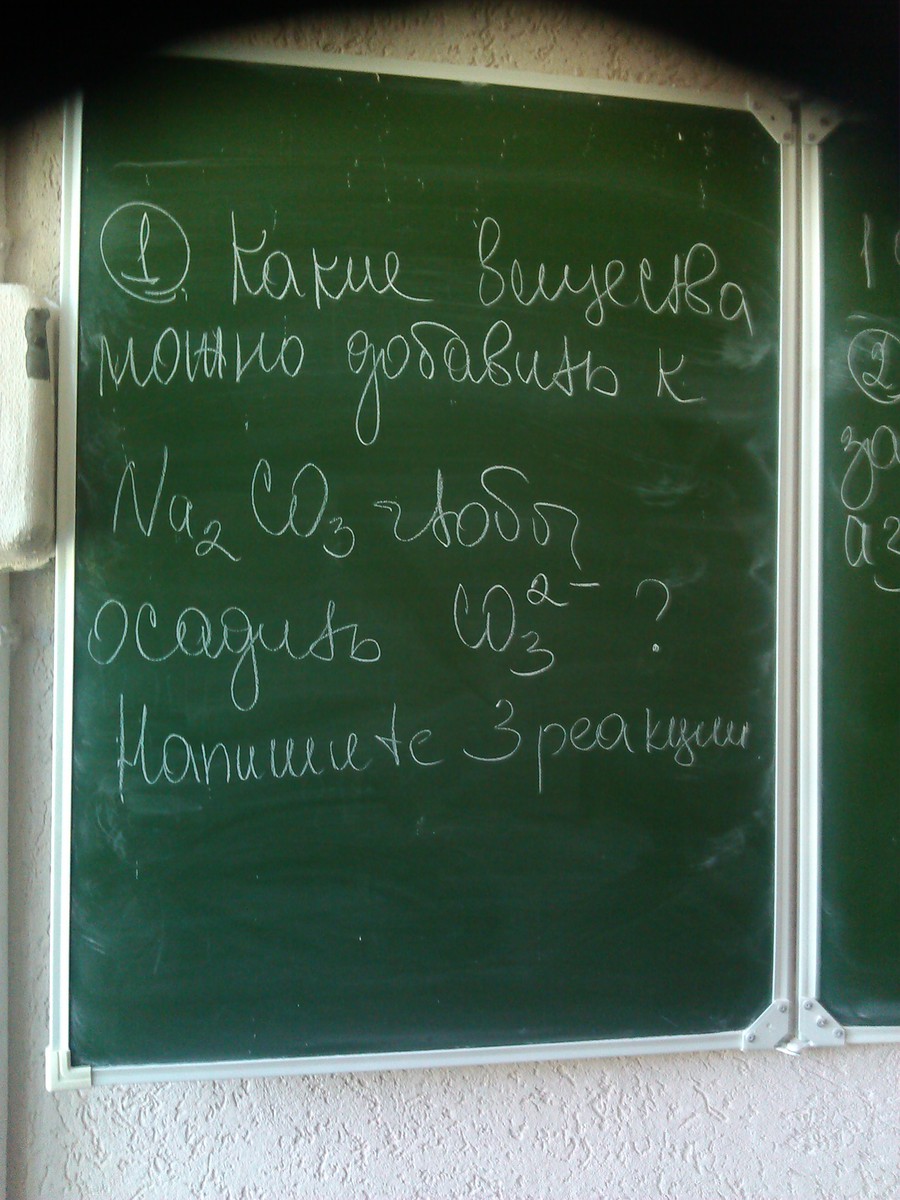 ① Какие вещества
можно добавить к
Na₂CO₃ чтобы
осадить CO₃²⁻ ?
Напишите 3 реакции
1
②
за
аз